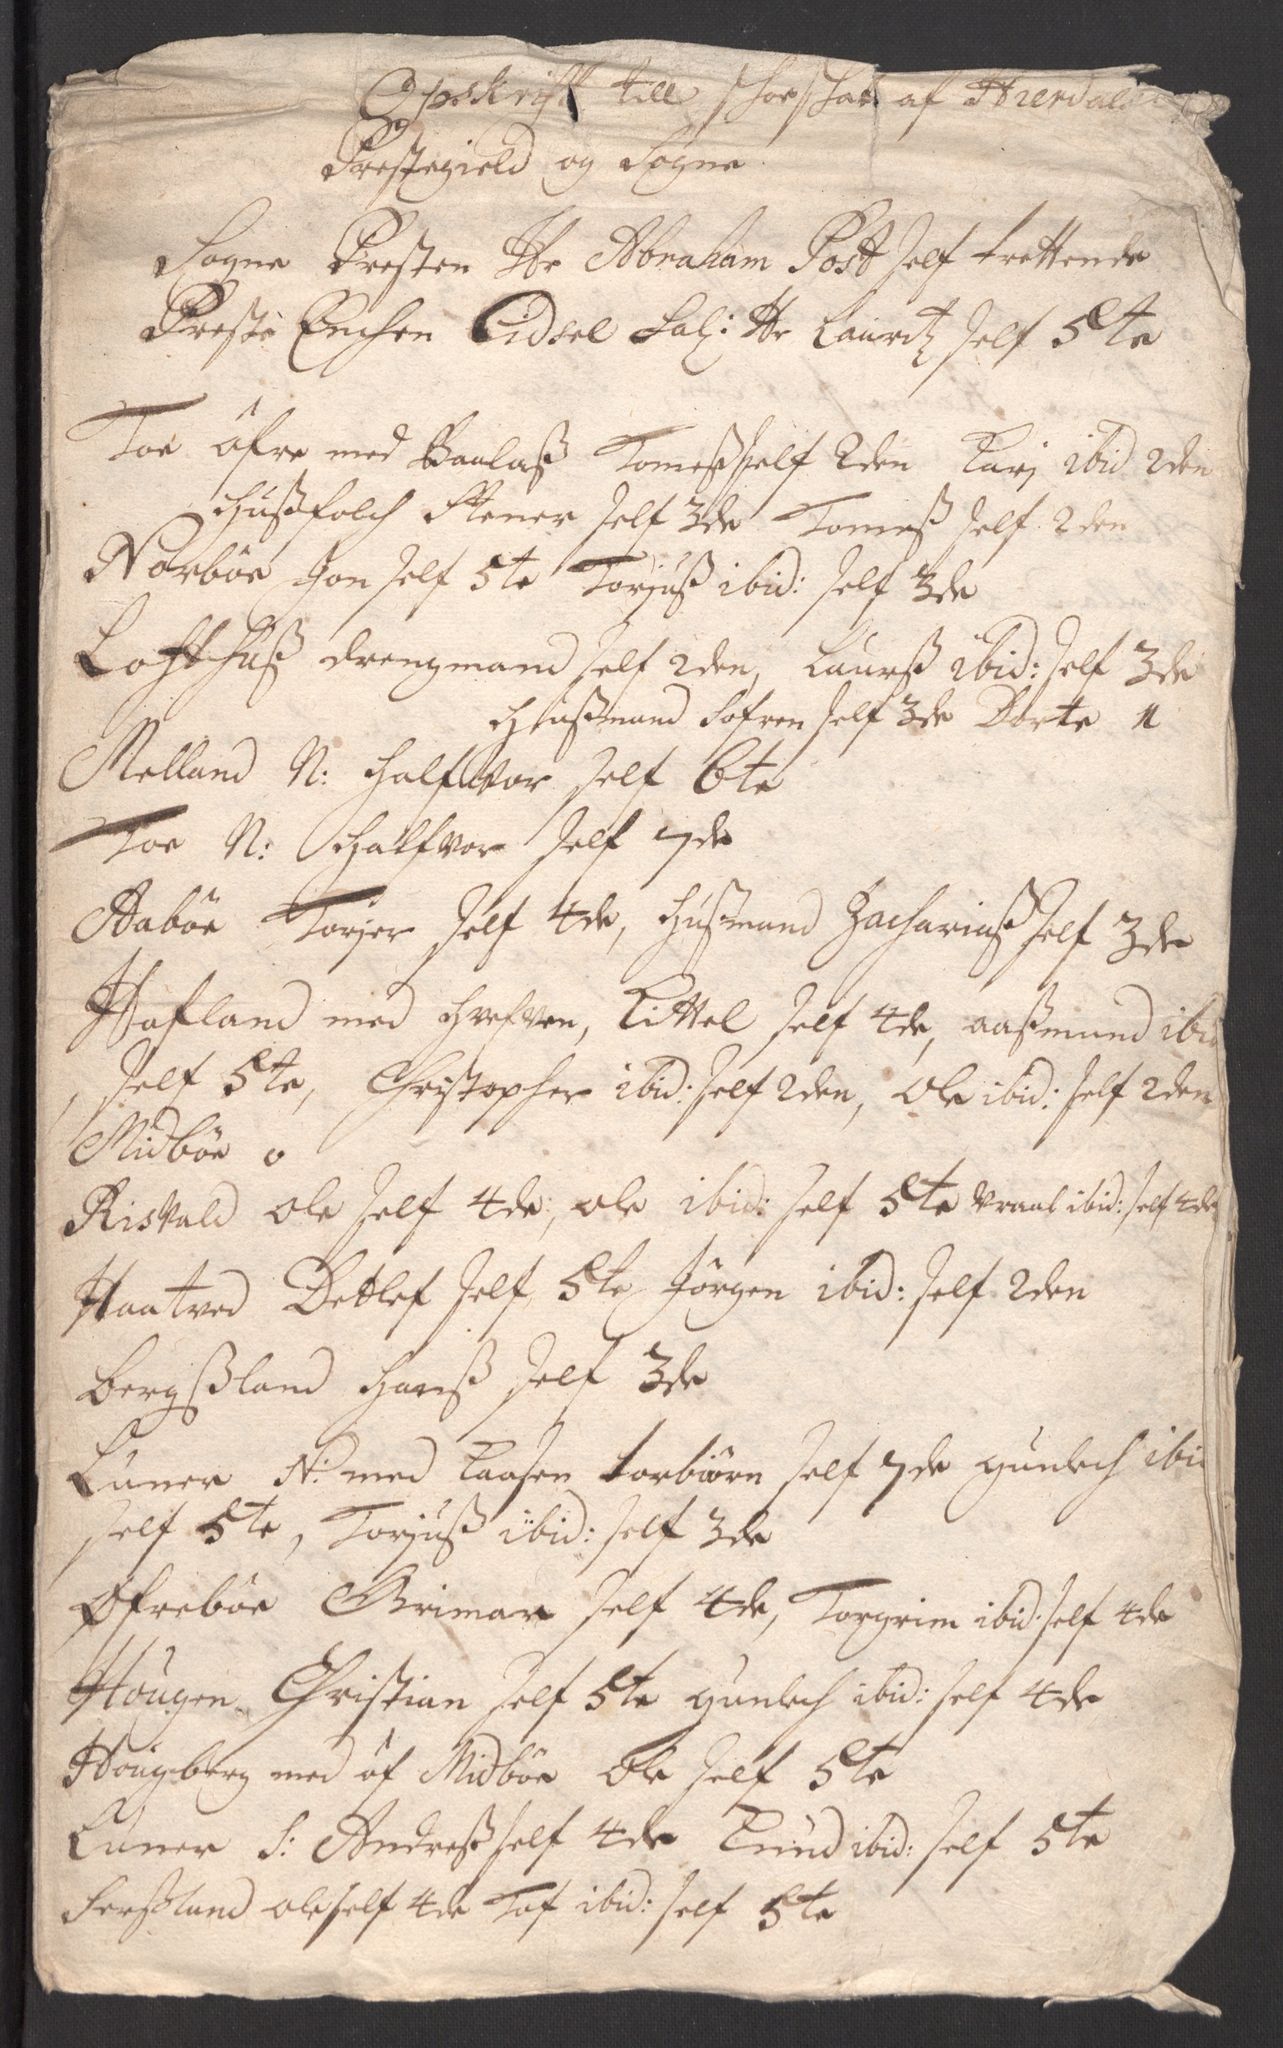 Opskrift till schoeschat af Hierdals
Prestegield og Sogne
Sogne Presten Hr Abraham Post self trettende
Preste Enchen Sidsel Sal: Hr Lauritz self 5te
Toe öfre med Baalaß Tomeß self 2den Kari ibid 2den
hußfolch Stener self 3de Tomeß self 2den
Norböe Jon self 5te Torjuß ibid: self 3de
Lofthuß drengmand self 2den, Laurß ibid: self 3de
hußmand Sofren self 3de Dorte 1
Melland N: halfvor self 6te
Toe N: halfvor self 7de
Aaböe Torjer self 4de, hußmand Zachariaß self 3de
Hafland med hvefven, Kittel self 4de, aaßmund ibid
self 5te, Christopher ibid: self 2den, Ole ibid: self 2den
Midböe 0
Risvald Ole self 4de, ole ibid: self 5te vraal ibid: self 4de
Haatved Detlef self 5te Jörgen ibid: self 2den
Bergßland hanß self 3de
Luner N: med Kaasen torbiörn self 7de gunlech ibid
self 5te, Torjuß ibid: self 3de
Øfreböe Grimar self 4de, Torgrim ibid: self 4de
Hougen Christian self 5te gunlech ibid: self 4de
Hougberg med öf Midböe Ole self 5te
Luner S: Andreß self 4de Knud ibid: self 5te
Forßland ole self 4de Tof ibid: self 5te